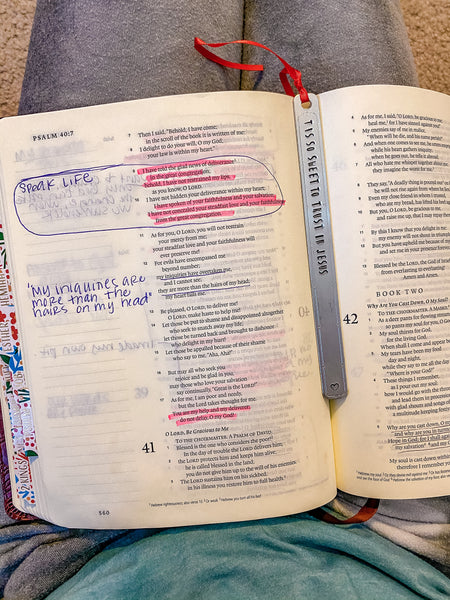 PSALM 40:7
7 Then I said, "Behold, I have come;
in the scroll of the book it is written of me:
8 I delight to do your will, O my God;
your law is within my heart."
9 I have told the glad news of deliverance
in the great congregation;
behold, I have not restrained my lips,
as you know, O LORD.
10 I have not hidden your deliverance within my heart;
I have spoken of your faithfulness and your salvation;
I have not concealed your steadfast love and your faithfulness
from the great congregation.
SPEAK LIFE
11 As for you, O LORD, you will not restrain
your mercy from me;
your steadfast love and your faithfulness will
ever preserve me!
12 For evils have encompassed me
beyond number;
my iniquities have overtaken me,
and I cannot see;
they are more than the hairs of my head;
my heart fails me.
"MY INIQUINES ARE
MORE THAN THE
HAIRS ON MY HEAD"
13 Be pleased, O LORD, to deliver me!
O LORD, make haste to help me!
14 Let those be put to shame and disappointed altogether
who seek to snatch away my life;
let those be turned back and brought to dishonor
who delight in my hurt!
15 Let those be appalled because of their shame
who say to me, "Aha, Aha!"
16 But may all who seek you
rejoice and be glad in you;
may those who love your salvation
say continually, "Great is the LORD!"
17 As for me, I am poor and needy,
but the Lord takes thought for me.
You are my help and my deliverer;
do not delay, O my God!
O LORD, Be Gracious to Me
41 TO THE CHOIRMASTER. A PSALM OF DAVID.
Blessed is the one who considers the poor!
In the day of trouble the LORD delivers him;
2 the LORD protects him and keeps him alive;
he is called blessed in the land;
you do not give him up to the will of his enemies.
3 The LORD sustains him on his sickbed;
in his illness you restore him to full health.
560
'TIS SO SWEET TO TRUST IN JESUS
4 As for me, I said, "O LORD, be gracious to me;
heal me, for I have sinned against you!"
5 My enemies say of me in malice,
"When will he die, and his name perish?"
6 And when one comes to see me, he utters
while his heart gathers iniquity;
when he goes out, he tells it abroad.
7 All who hate me whisper together about
they imagine the worst for me.
8 They say, "A deadly thing is poured out
he will not rise again from where he
9 Even my close friend in whom I
who ate my bread, has lifted his heel
10 But you, O LORD, be gracious to me,
and raise me up, that I may repay them
11 By this I know that you delight in me:
my enemy will not shout in triumph
12 But you have upheld me because of my
and set me in your presence
13 Blessed be the LORD, the God of Israel,
from everlasting to everlasting!
Amen and Amen.
BOOK TWO
Why Are You Cast Down, O My Soul?
42 TO THE CHOIRMASTER. A MASKIL
As a deer pants for flowing streams,
so pants my soul for you, O God.
2 My soul thirsts for God,
for the living God.
When shall I come and appear before
3 My tears have been my food
day and night,
while they say to me all the day
"Where is your God?"
4 These things I remember,
as I pour out my soul:
how I would go with the throng
and lead them in procession
with glad shouts and songs of
a multitude keeping festival.
5 Why are you cast down, O my soul,
and why are you in turmoil
Hope in God; for I shall again
my salvation 6 and my God.
My soul is cast down within
therefore I remember you
2 KINGS
ESTHER